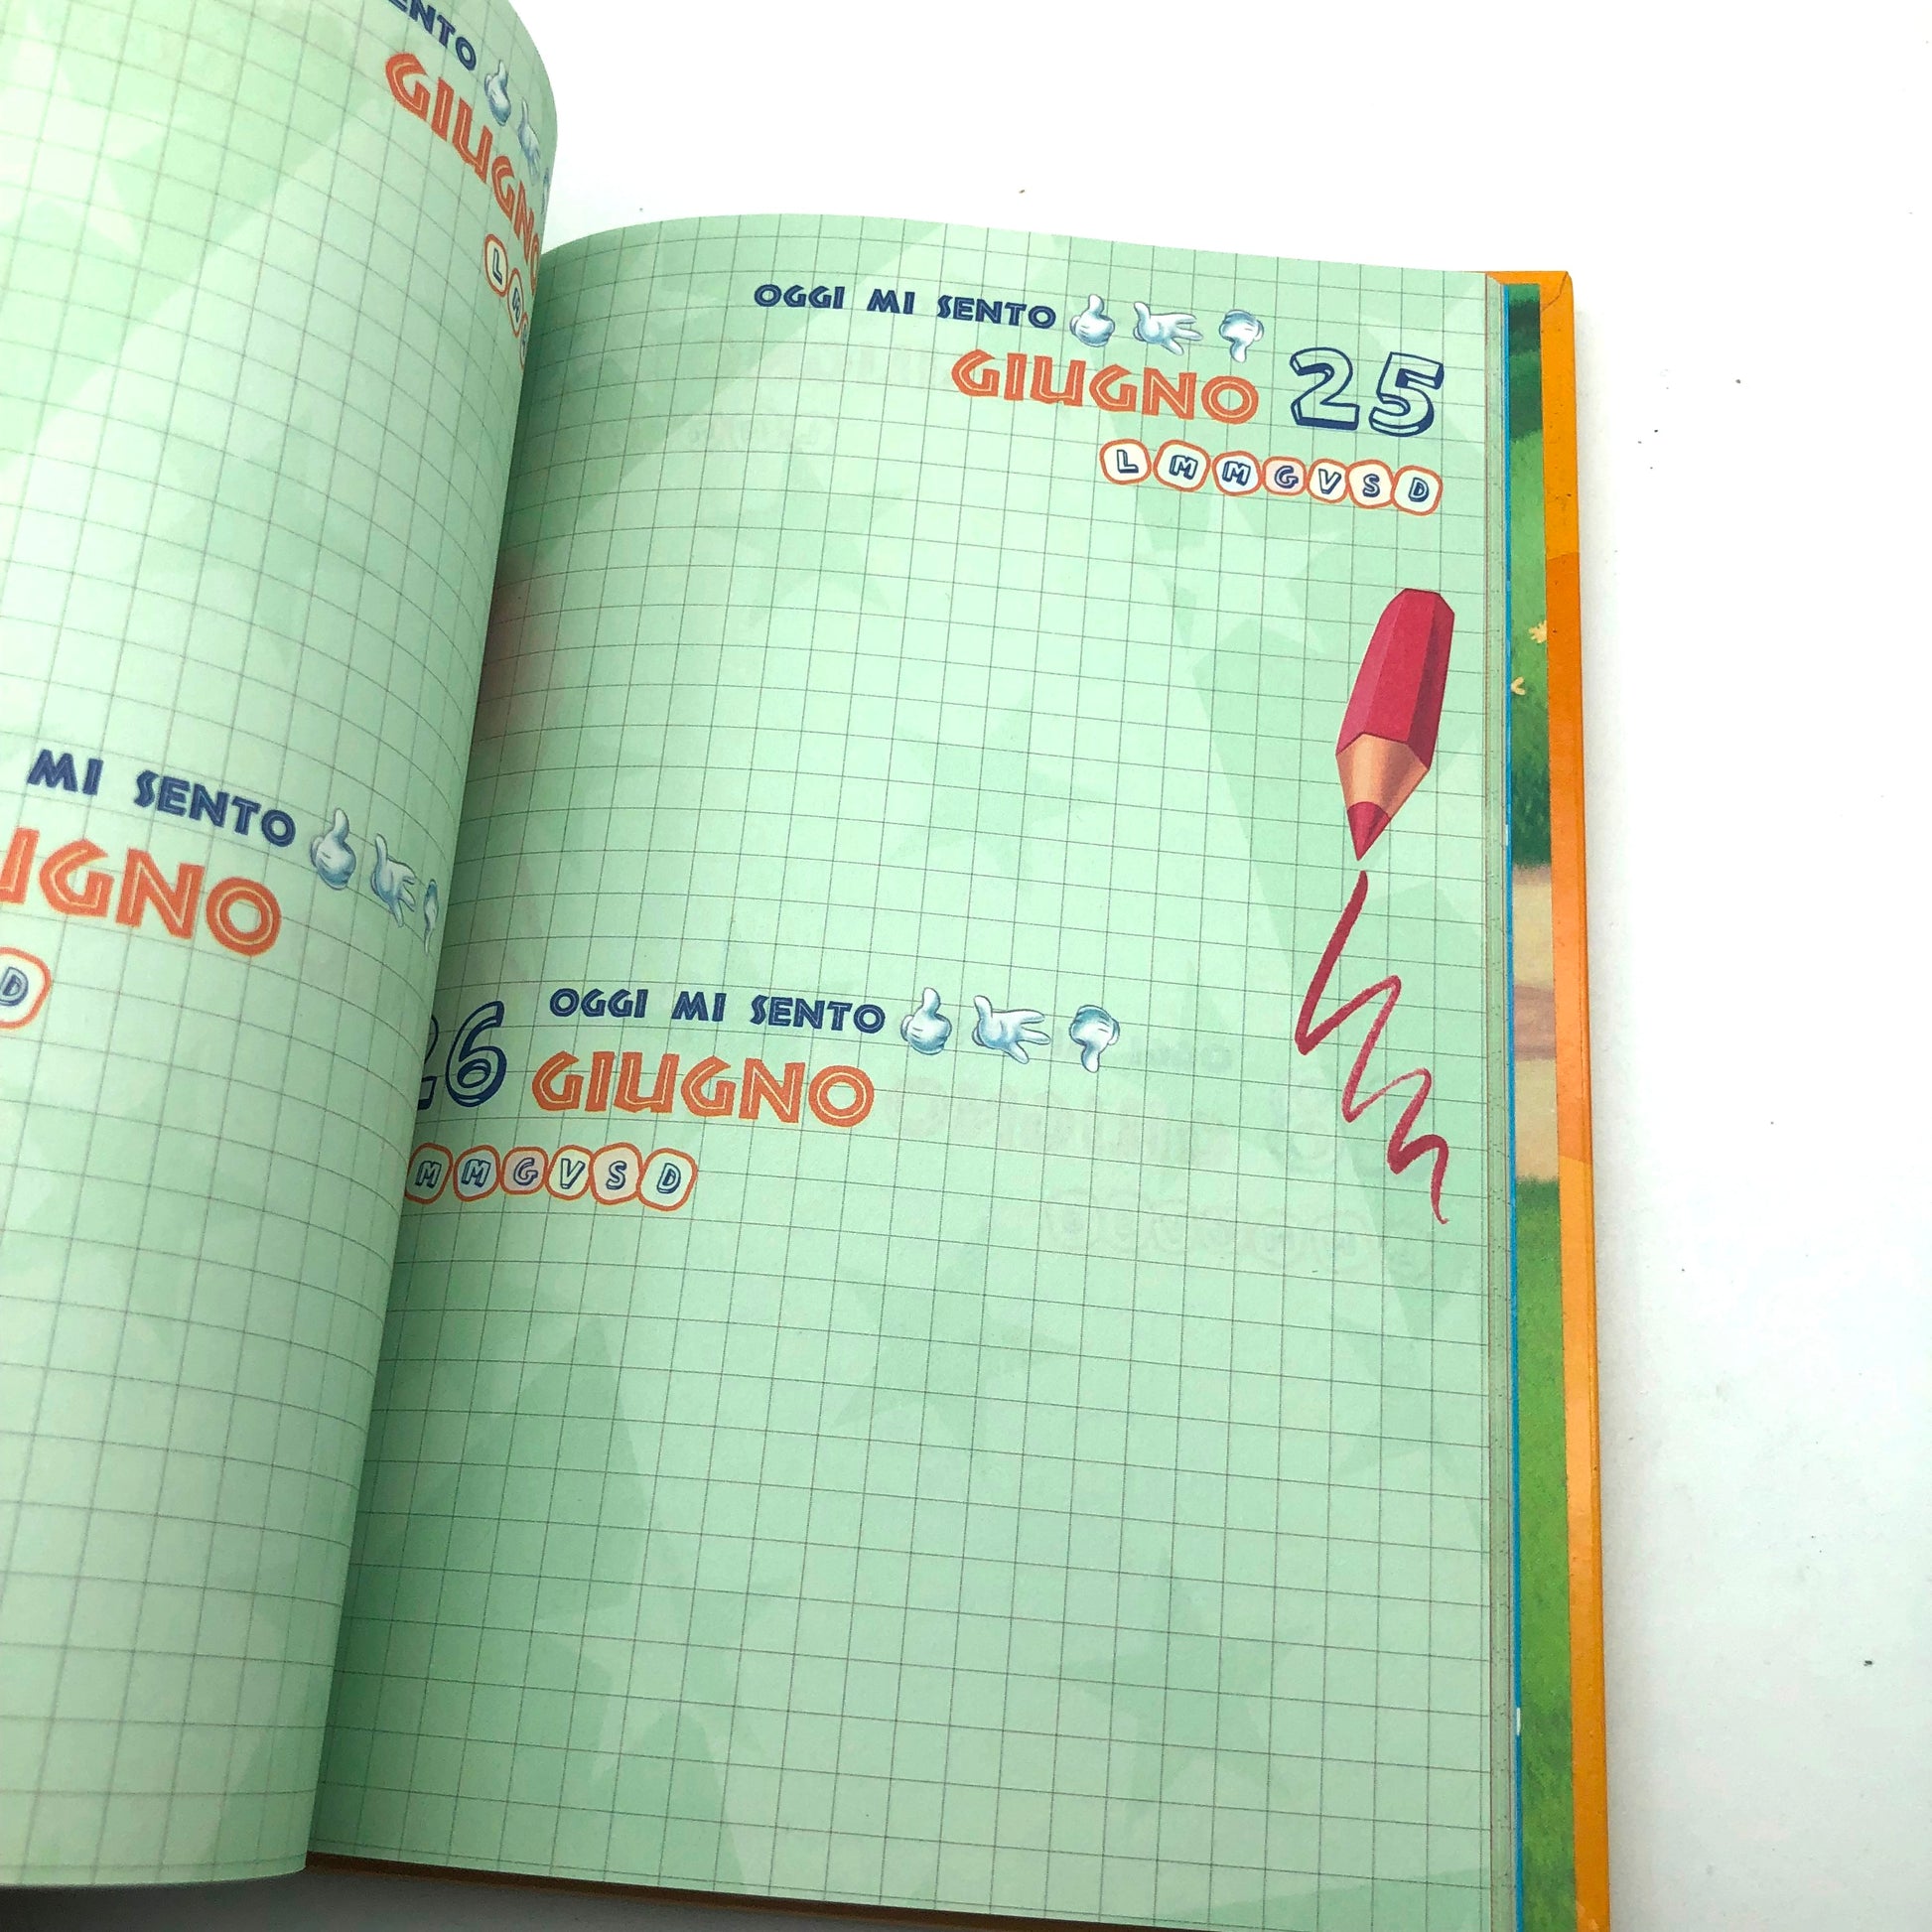 GIUGNO
L
MI SENTO
D
OGGI MI SENTO
GIUGNO 25
L M M G V S D
26 OGGI MI SENTO
GIUGNO
M M G V S D